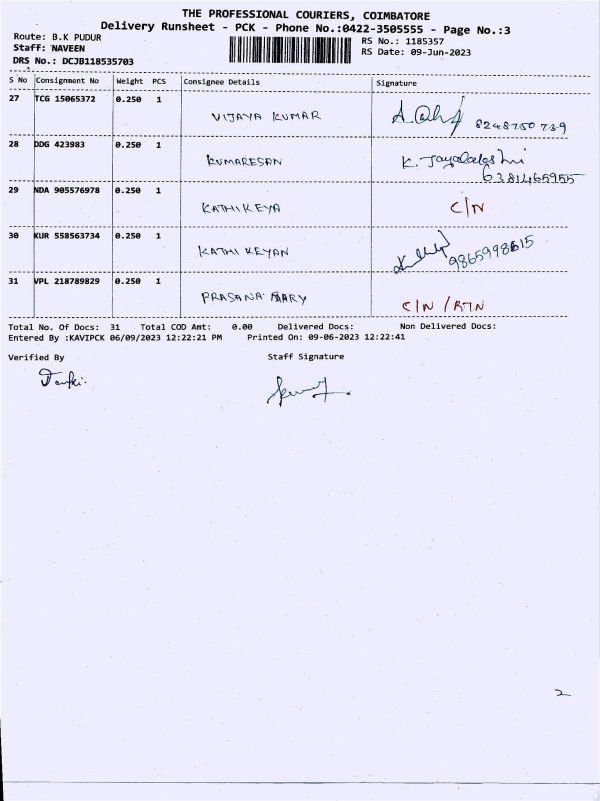 THE PROFESSIONAL COURIERS, COIMBATORE
Delivery Runsheet - PCK - Phone No.:0422-3505555 - Page No.:3
Route: B.K PUDUR
RS No.: 1185357
Staff: NAVEEN
RS Date: 09-Jun-2023
DRS No.: DCJB118535703
S No Consignment No Weight PCS Consignee Details Signature
27 TCG 15065372 0.250 1 VIJAYA KUMAR
28 DDG 423983 0.250 1 KUMARESAN K. Jayalakshmi
6381465955
29 NDA 905576978 0.250 1 KATHIKEYA C/N
30 KUR 558563734 0.250 1 KATHI KEYAN 9865998615
31 VPL 218789829 0.250 1 PRASANA MARY C/N / RTN
Total No. Of Docs: 31 Total COD Amt: 0.00 Delivered Docs: Non Delivered Docs:
Entered By :KAVIPCK 06/09/2023 12:22:21 PM Printed On: 09-06-2023 12:22:41
Verified By Staff Signature
2